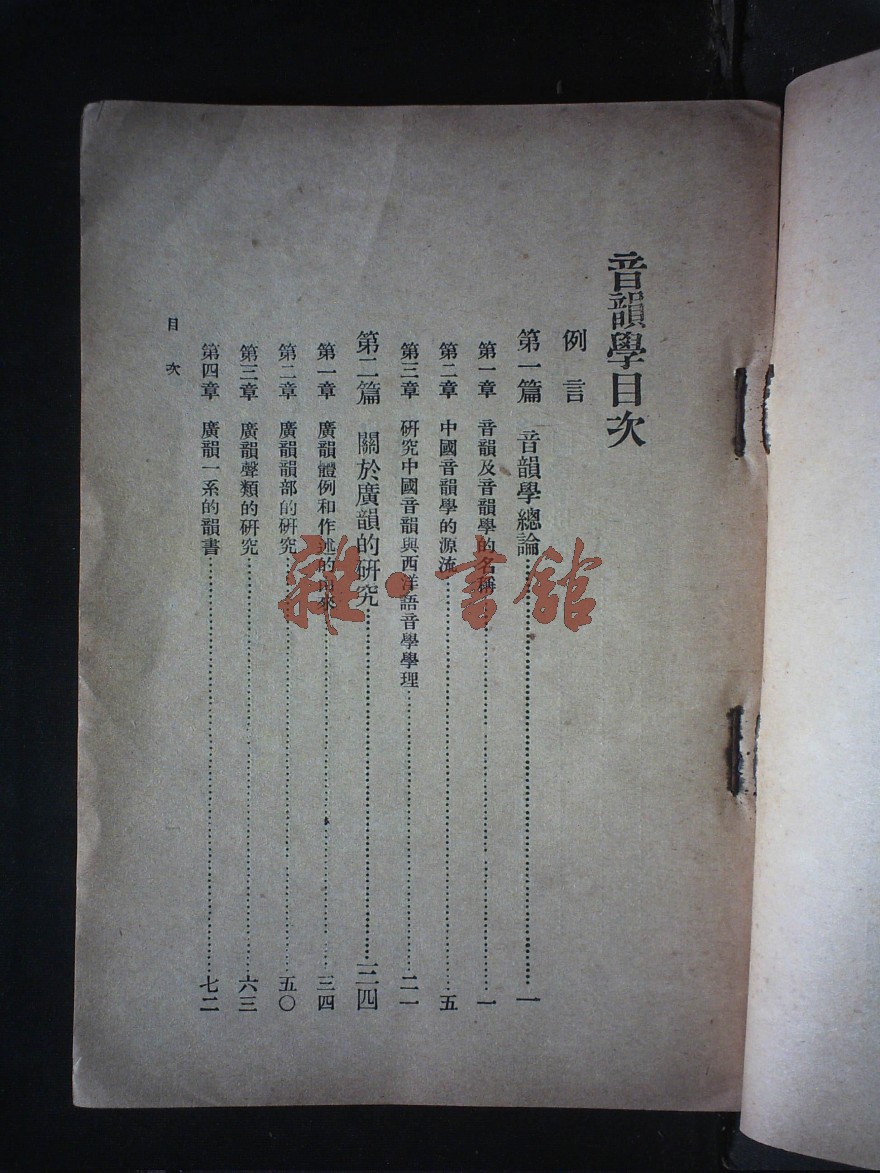 音韻學目次
例言
第一篇 音韻學總論……一
第一章 音韻及音韻學的名稱……一
第二章 中國音韻學的源流……五
第三章 研究中國音韻與西洋語音學學理……二一
第二篇 關於廣韻的研究……三四
第一章 廣韻體例和作述的由來……三四
第二章 廣韻韻部的研究……五〇
第三章 廣韻聲類的研究……六三
第四章 廣韻一系的韻書……七二
目次
雜·書館